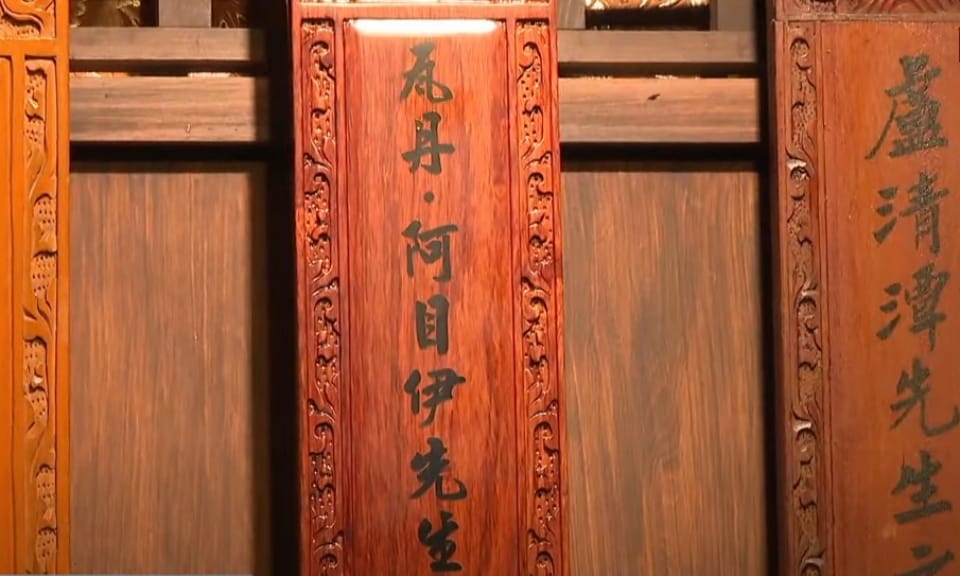 盧清潭先生
瓦丹·阿目伊先生